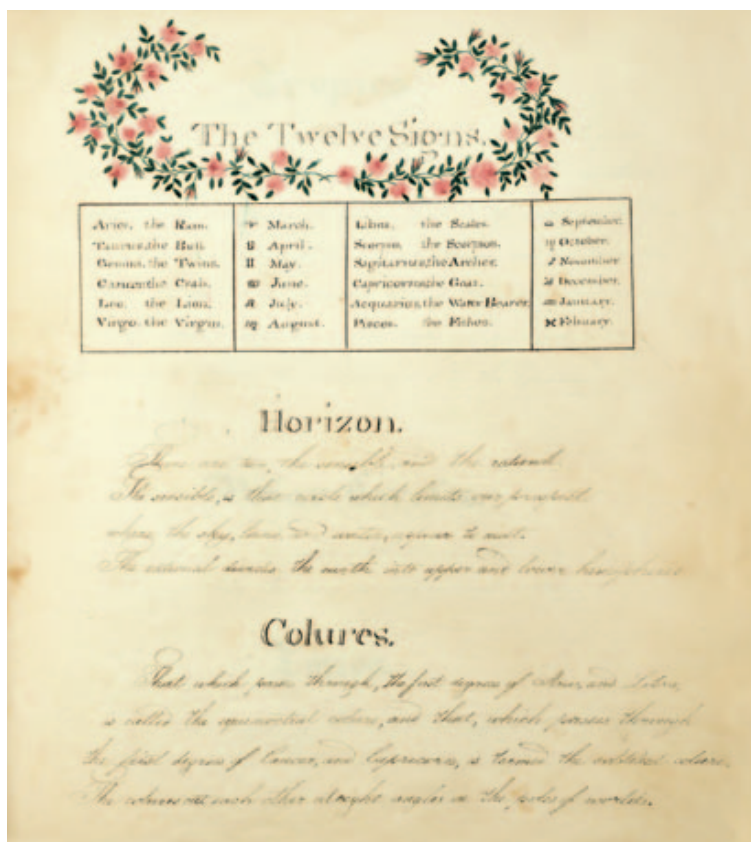 The Twelve Signs.
Aries, the Ram. ♈ March. Libra, the Scales. ♎ September.
Taurus, the Bull. ♉ April. Scorpio, the Scorpion. ♏ October.
Gemini, the Twins. ♊ May. Sagitarius, the Archer. November
Cancer, the Crab. ♋ June. Capricornus, the Goat. December.
Leo, the Lion. ♌ July. Acquarius, the Water Bearer. ♒ January.
Virgo, the Virgin. ♍ August. Pisces. the Fishes. ♓ February.
Horizon.
There are two, the sensible and the rational.
The sensible, is that circle which limits our prospect
where the sky, land, and water, appear to meet.
The rational divides the earth into upper and lower hemispheres
Colures.
That which pass through, the first degrees of Aries, and Libra,
is called the equinoctial colure, and that, which passes through
the first degree of Cancer, and Capricorn, is termed the solstitial colure.
The colures cut each other at right angles in the poles of world.